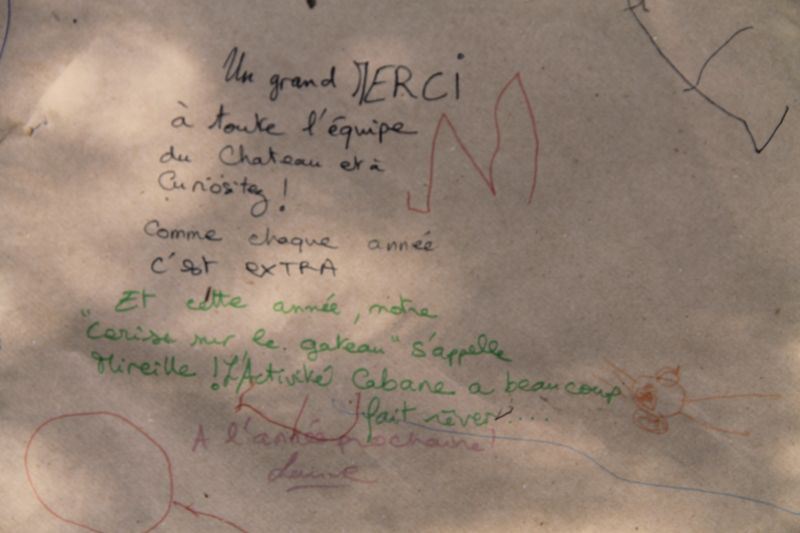 Un grand MERCI
à toute l'équipe
du Chateau et à
Curiositez !
Comme chaque année
c'est EXTRA
Et cette année, notre
"cerise sur le gateau" s'appelle
Mireille ! L'Activité Cabane a beaucoup
fait rêver !....
A l'année prochaine !